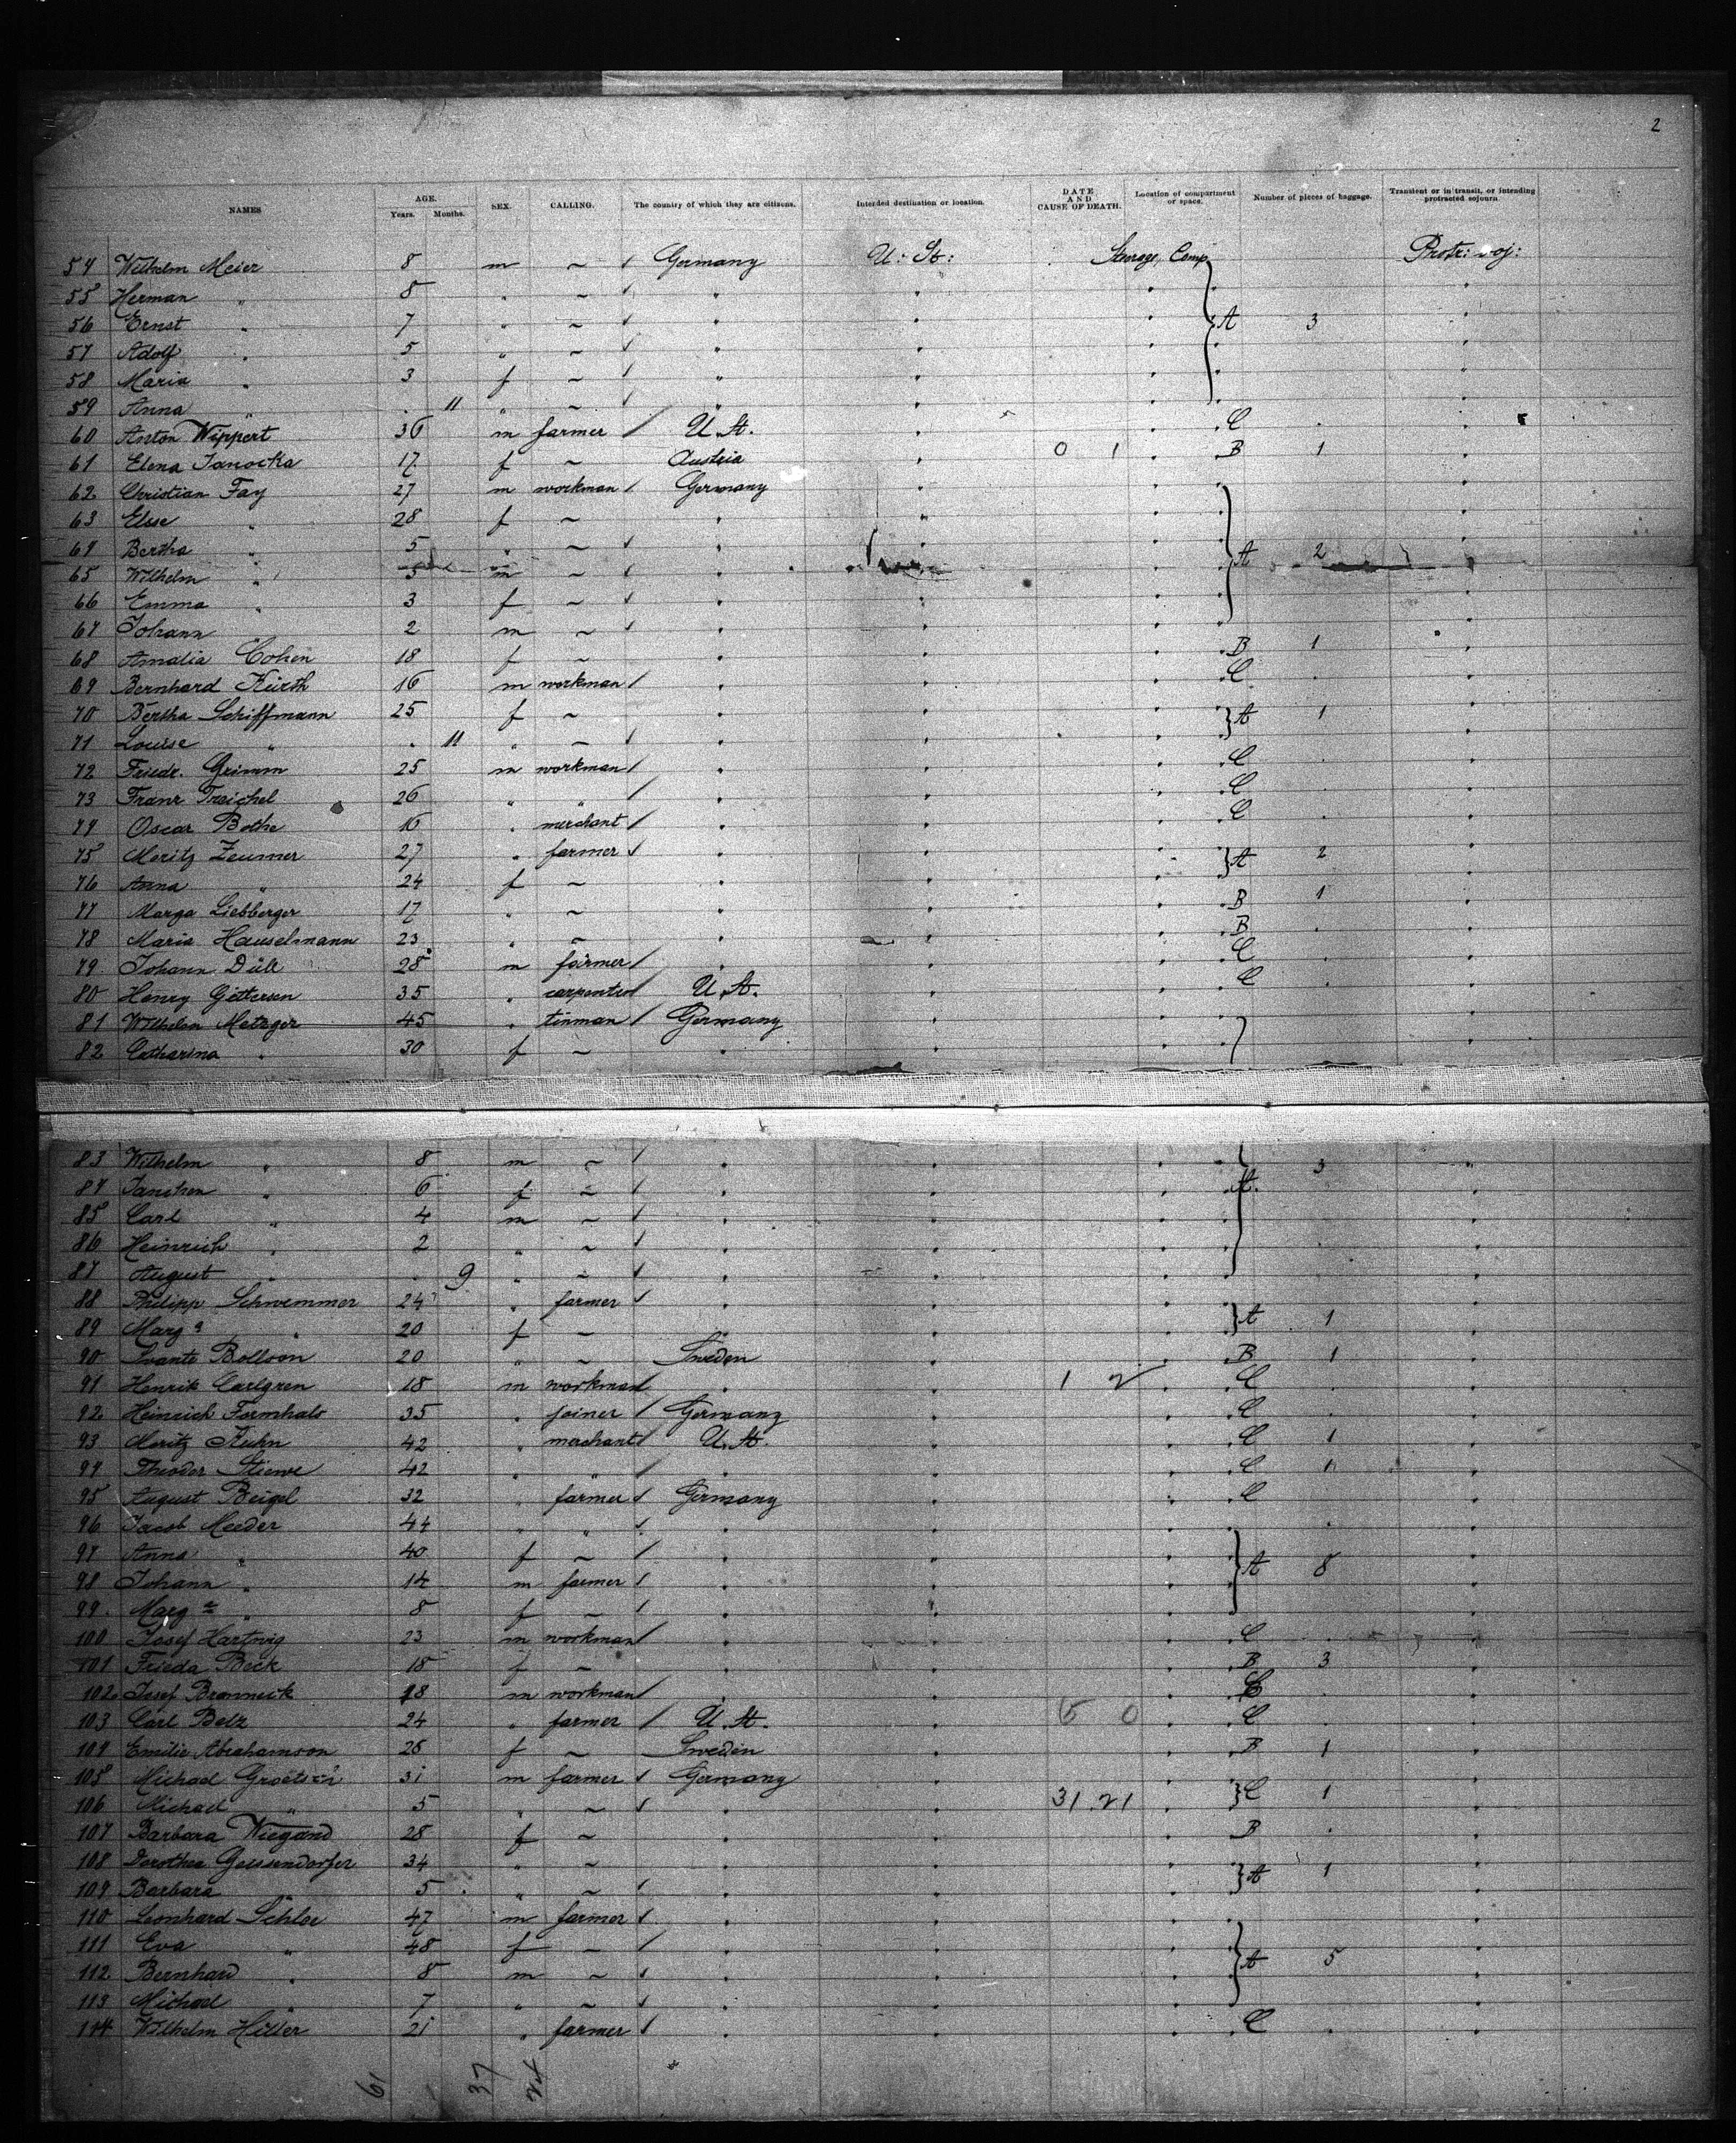 2
NAMES AGE. Years. Months. SEX. CALLING. The country of which they are citizens. Intended destination or location. DATE AND CAUSE OF DEATH. Location of compartment or space. Number of pieces of baggage. Transient or in transit, or intending protracted sojourn
54 Wilhelm Meier 8 m ~ / Germany U. St: Steerage, Comp.
55 Herman " 8 " ~ / "
56 Ernst " 7 " ~ / " A 3
57 Adolf " 5 " ~ / "
58 Maria " 3 f ~ / "
59 Anna " . 11 " ~ / "
60 Anton Wippert 36 m farmer / U. St. C .
61 Elena Janocka 17 f ~ Austria 0 1 B 1
62 Christian Fay 27 m workman / Germany
63 Else " 28 f ~ "
64 Bertha " 5 " ~ / " A 2
65 Wilhelm " 5 m ~ / "
66 Emma " 3 f ~ / "
67 Johann " 2 m ~ / "
68 Amalia Cohen 18 f ~ " B 1
69 Bernhard Kürth 16 m workman / " C .
70 Bertha Schiffmann 25 f ~ " A 1
71 Louise " . 11 " ~ / "
72 Friedr. Grimm 25 m workman / " C .
73 Franz Treichel 26 " " / " C .
74 Oscar Bothe 16 " merchant / " C .
75 Moritz Zeumer 27 " farmer / " A 2
76 Anna " 24 f ~ "
77 Marga Liebberger 17 " ~ " B 1
78 Maria Hauselmann 23 " ~ " B .
79 Johann Düll 28 m farmer / " C .
80 Henry Gittersen 35 " carpenter / U. St. C .
81 Wilhelm Metzger 45 " tinman / Germany
82 Catharina " 30 f ~ "
83 Wilhelm " 8 m ~ / " 3
84 " 6 f ~ / " A.
85 Carl " 4 m ~ / "
86 Heinrich " 2 " ~ / "
87 August " . 9 " ~ / "
88 Philipp Schwemmer 24 " farmer / "
89 Marg a " 20 f ~ " A 1
90 Svante Bollson 20 " ~ Sweden B 1
91 Henrik Carlgren 18 m workman / " 1 2 C .
92 Heinrich Formhals 35 " joiner / Germany C .
93 Moritz Kuhn 42 " merchant / U. St. C 1
94 Theodor Stiewe 42 " " / " C 1
95 August Beigel 32 " farmer / Germany C .
96 Jacob Meeder 44 " " / "
97 Anna " 40 f ~ / " A 8
98 Johann " 14 m farmer / "
99 Marg a " 8 f ~ / "
100 Josef Hartwig 23 m workman / " C .
101 Frieda Beck 18 f ~ " B 3
102 Josef Branneck 18 m workman / " C .
103 Carl Belz 24 " farmer / U. St. 5 0 C .
104 Emilie Abrahamson 25 f ~ Sweden B 1
105 Michael 31 m farmer / Germany C 1
106 Michael " 5 " ~ / " 31 21
107 Barbara Wiegand 28 f ~ " B .
108 Dorothea Geissendorfer 34 " ~ " A 1
109 Barbara " 5 " ~ / "
110 Leonhard Schlee 47 m farmer / "
111 Eva " 48 f ~ / "
112 Bernhard " 8 m ~ / " A 5
113 Michael " 7 " ~ / "
114 Wilhelm Hiller 21 " farmer / " C .
61 37 24